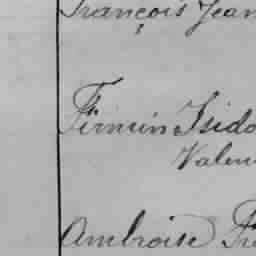 François Jean
Firmin Isido
Valen
Ambroise Fr